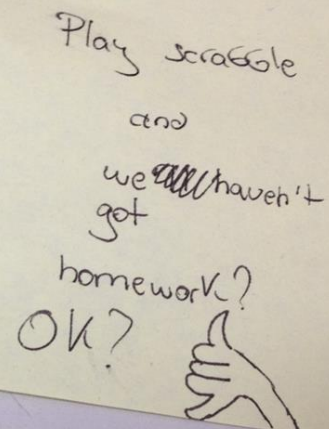 Play scrabble
and
we haven't
got
homework?
OK?